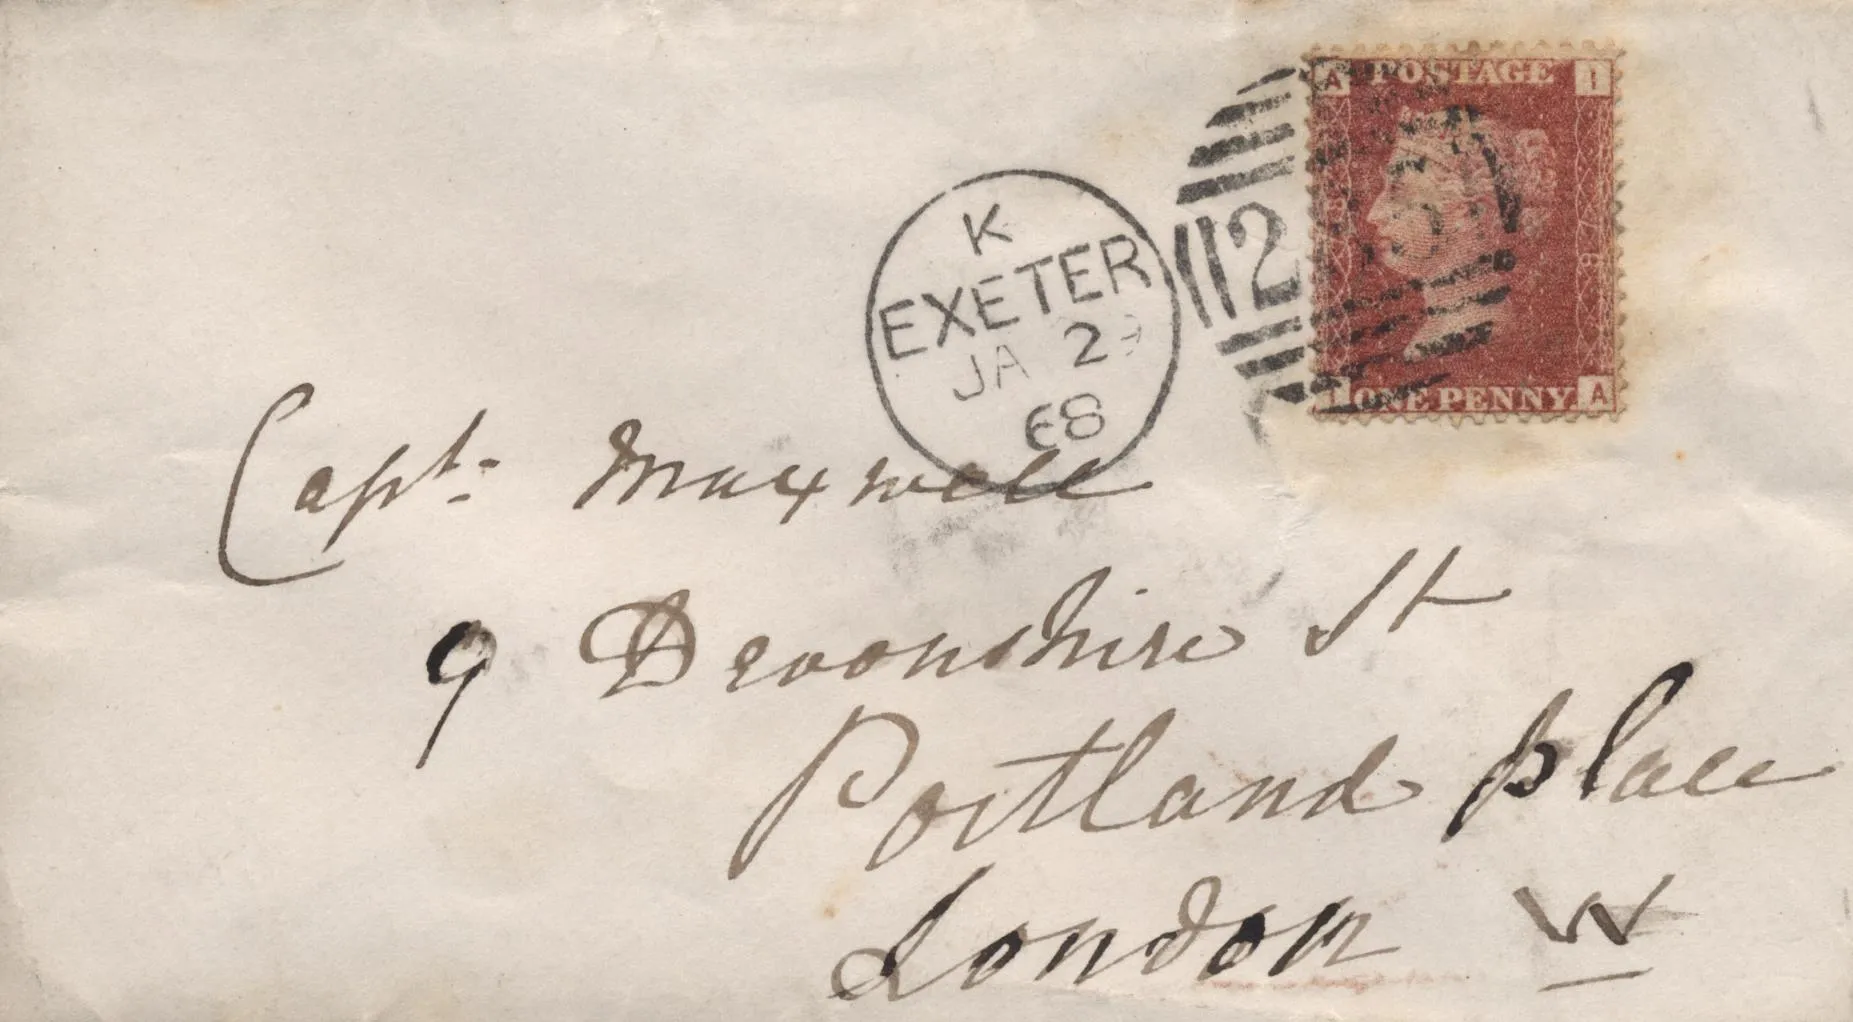 A POSTAGE I
K
EXETER
JA 29
68
2
ONE PENNY A
Capt. Maxwell
9 Devonshire St
Portland place
London W